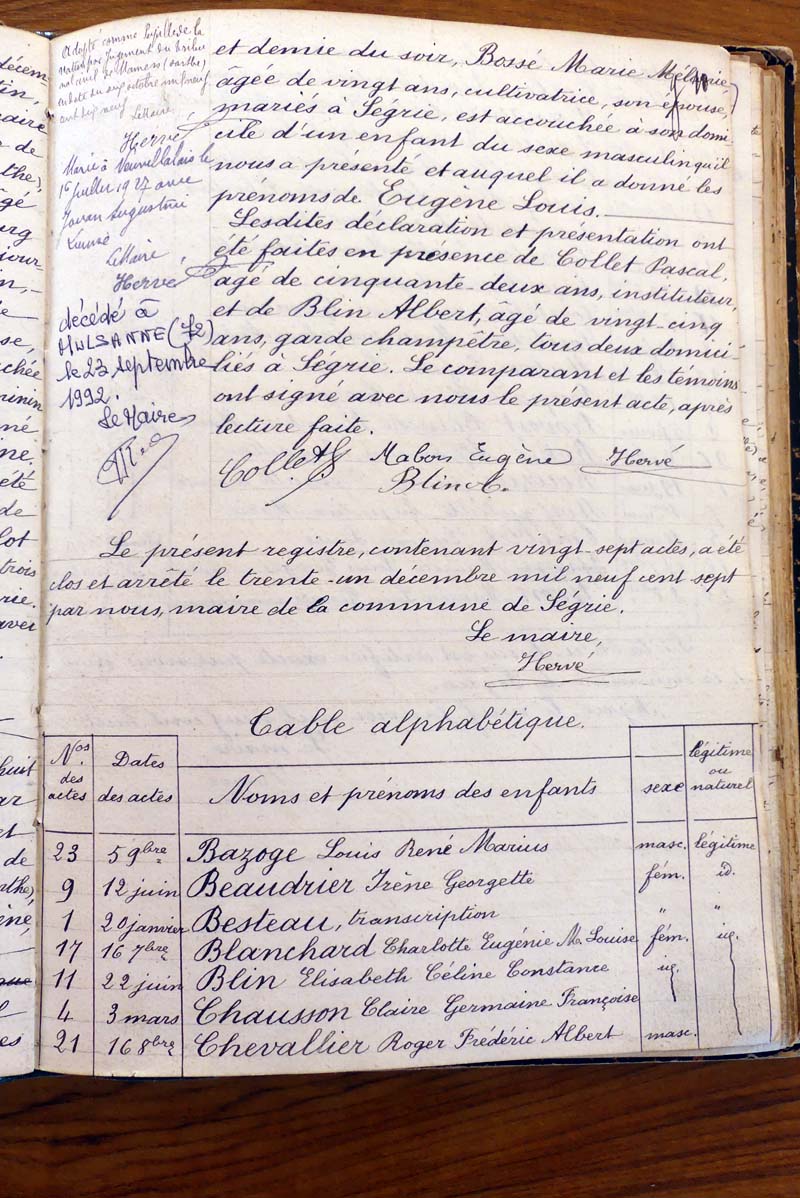 Adopté comme pupille de la
Nation par jugement du tribu
nal civil de Mamers (Sarthe)
en date du onze octobre mil neuf
cent dix neuf
Le Maire,
Hervé
Marié à Neuvillalais le
1er juillet 1927 avec
Augustine
Le Maire,
Hervé
décédé à
MULSANNE (72)
le 23 septembre
1992.
Le Maire
et demie du soir, Bossé Marie Mélanie
âgée de vingt ans, cultivatrice, son épouse,
mariés à Ségrie, est accouchée à son domi-
cile d'un enfant du sexe masculin qu'il
nous a présenté et auquel il a donné les
prénoms de Eugène Louis.
Lesdites déclaration et présentation ont
été faites en présence de Collet Pascal,
âgé de cinquante-deux ans, instituteur,
et de Blin Albert, âgé de vingt-cinq
ans, garde champêtre, tous deux domici-
liés à Ségrie. Le comparant et les témoins
ont signé avec nous le présent acte, après
lecture faite.
Collet Mabon Eugène Hervé
Blin A.
Le présent registre, contenant vingt-sept actes, a été
clos et arrêté le trente-un décembre mil neuf cent sept
par nous, maire de la commune de Ségrie.
Le maire,
Hervé
Table alphabétique.
Nos des actes Dates des actes Noms et prénoms des enfants sexe légitime ou naturel
23 5 9bre Bazoge Louis René Marius masc. légitime
9 12 juin Beaudrier Irène Georgette fém. id.
1 20 janvier Besteau, transcription " "
17 16 7bre Blanchard Charlotte Eugénie M. Louise fém. id.
11 22 juin Blin Elisabeth Céline Constance id.
4 3 mars Chausson Claire Germaine Françoise
21 16 8bre Chevallier Roger Frédéric Albert masc.